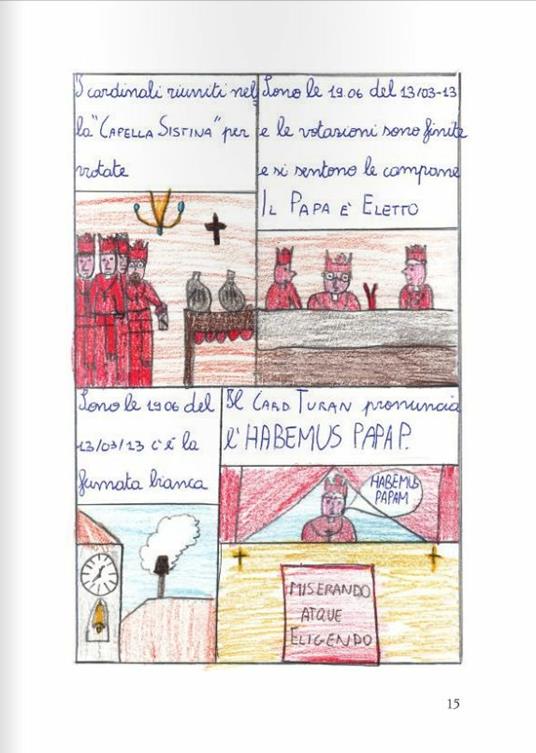 I cardinali riuniti nel
la "CAPELLA SISTINA" per
votate
Sono le 19.06 del 13/03-13
e le votazioni sono finite
e si sentono le campane
IL PAPA E' ELETTO
Sono le 1906 del
13/03/13 c'é la
fumata bianca
Il CARD TURAN pronuncia
l' HABEMUS PAPAP.
HABEMUS
PAPAM
MISERANDO
ATQUE
ELIGENDO
15